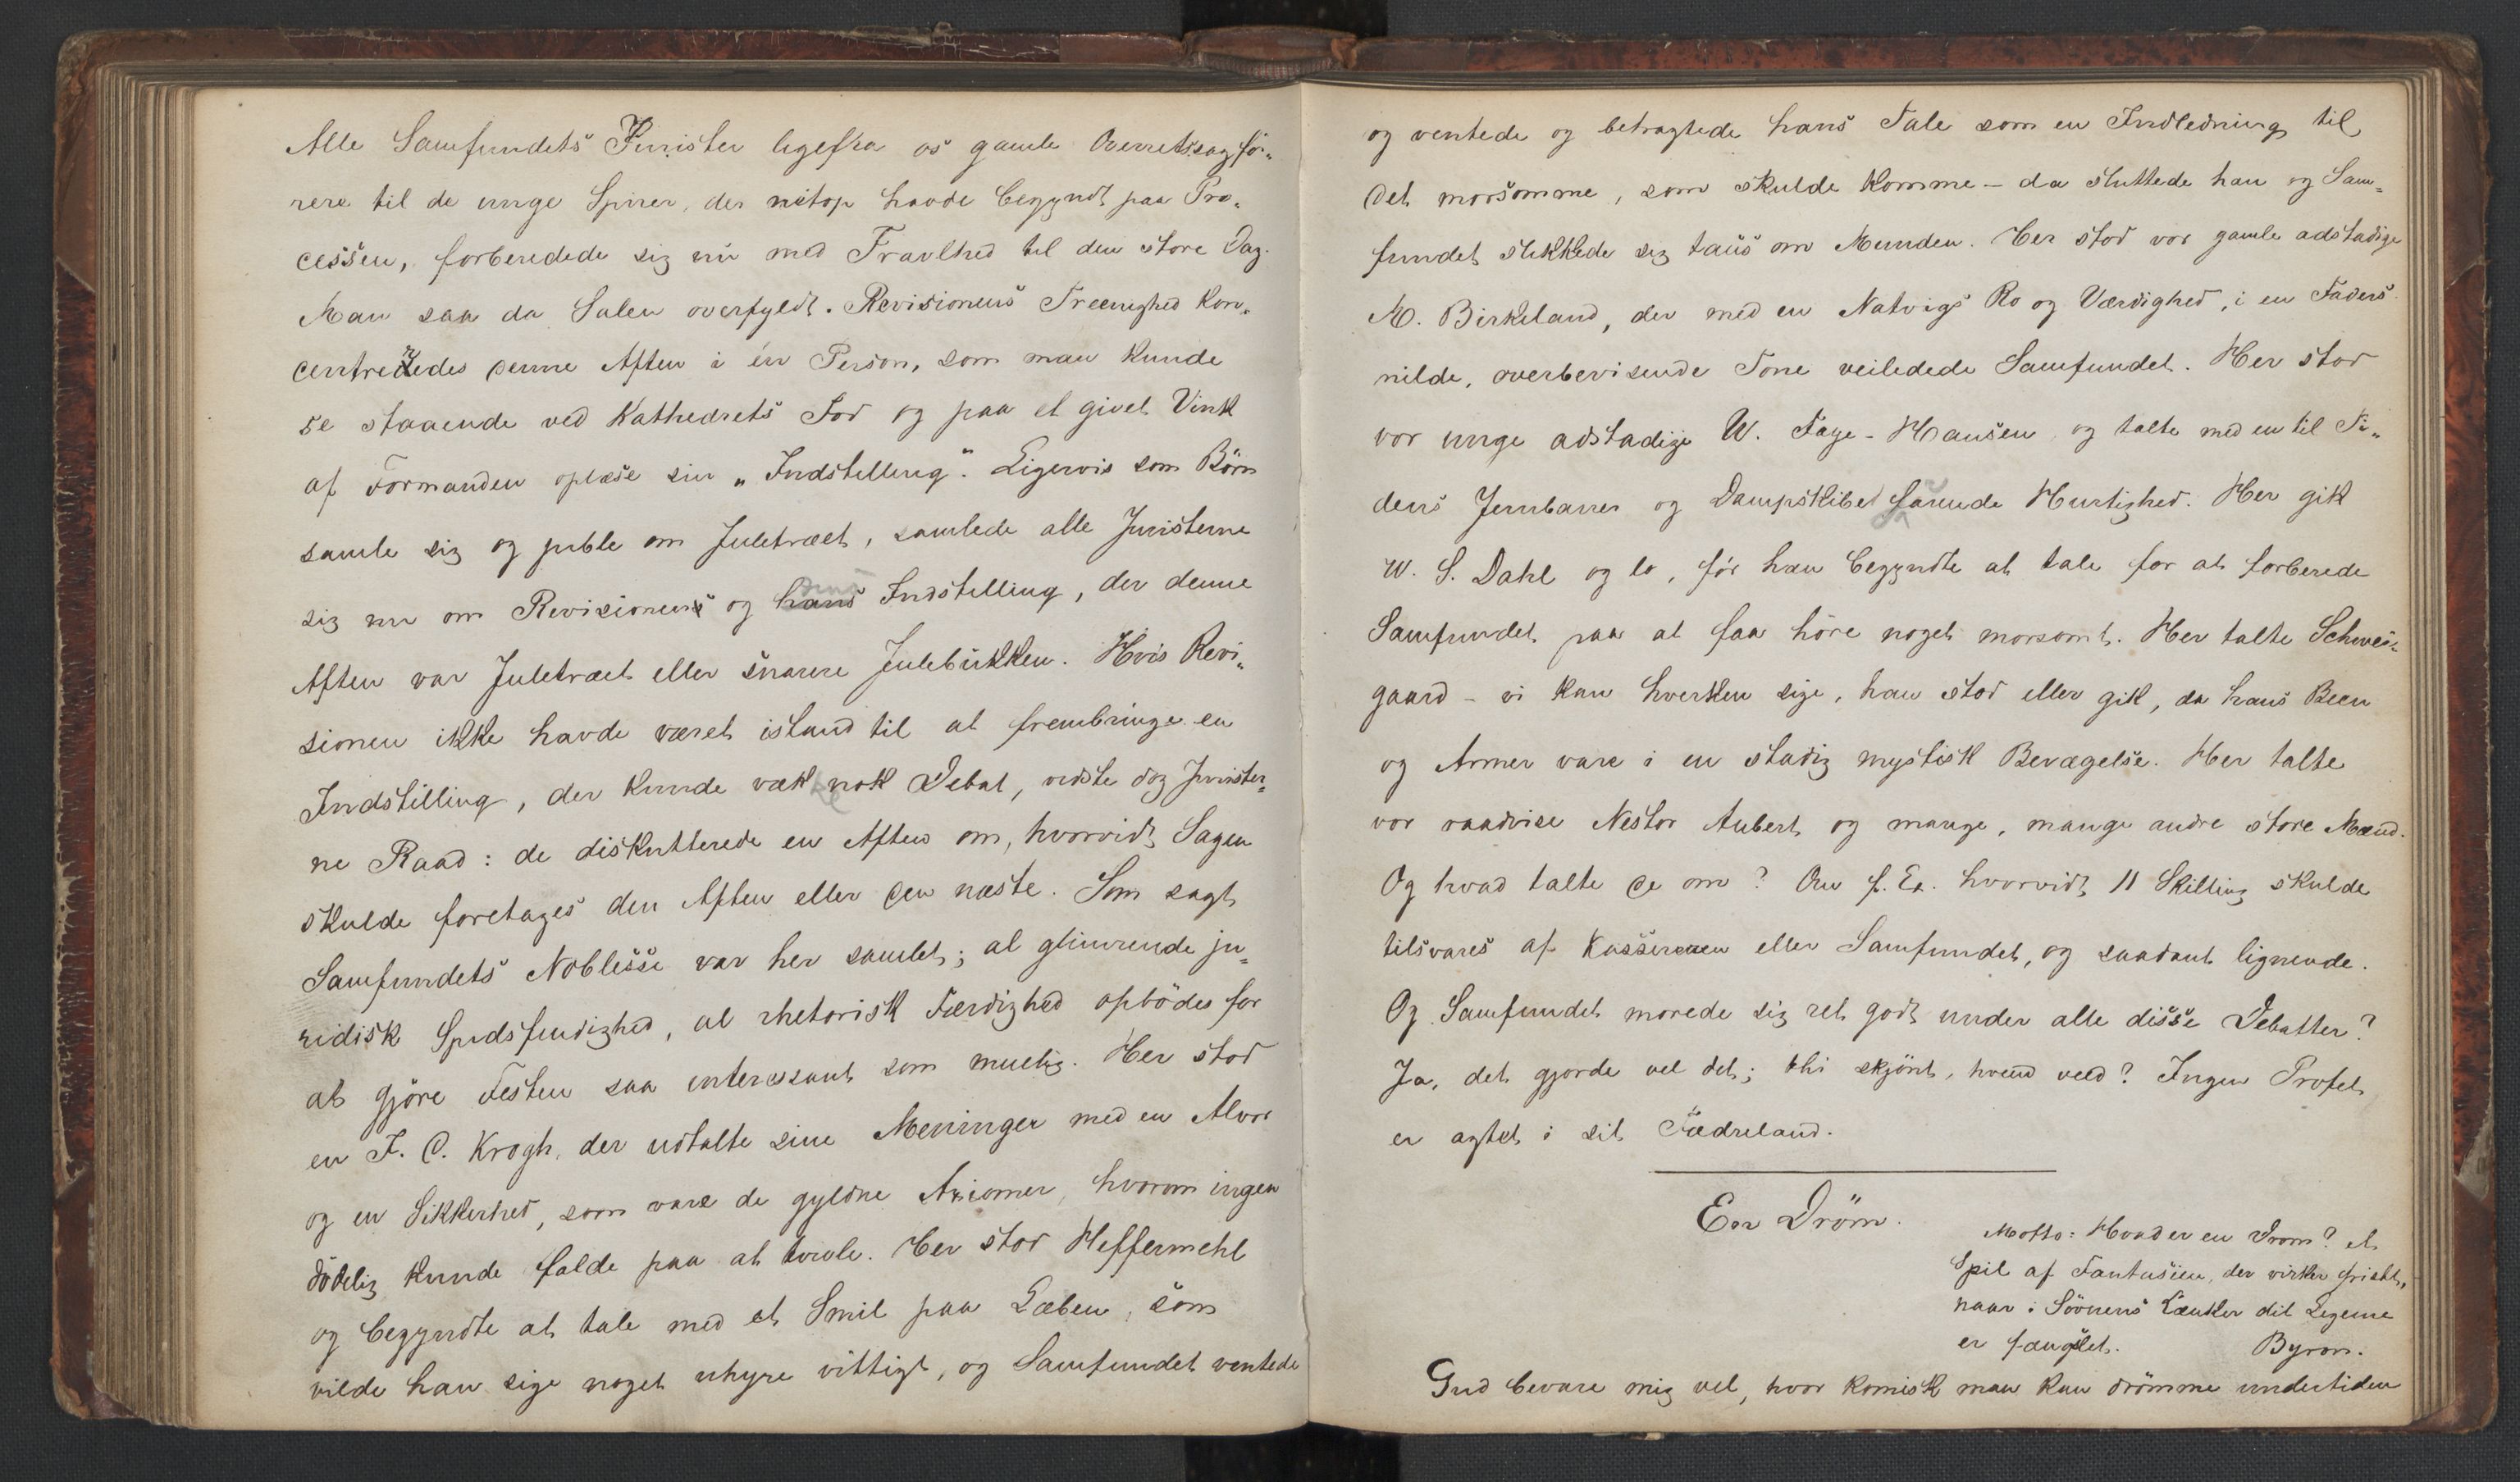 Alle Samfundets Jurister ligefra os gamle Overretssagfö„
rere til de unge Spirer, der netop havde begyndt paa Pro„
cessen, forberedede sig nu med Travlhed til den store Dag.
Man saa da Salen overfyldt. Revisionens Treenighed kon„
centreredes denne Aften i én Person, som man kunde
se staaende ved Kathedrets Fod og paa et givet Vink
af Formanden oplæse sin „Indstilling“. Ligervis som Börn
samle sig og juble om Juletræet, samlede alle Juristerne
sig nu om Revisionens og hans Indstilling, der denne
Aften var Juletræet eller snarere Julebukken. Hvis Revi„
sionen ikke havde været istand til at frembringe en
Indstilling, der kunde vække nok Debat, vidste dog Jurister„
ne Raad: de diskutterede en Aften om, hvorvidt Sagen
skulde foretages den Aften eller den næste. Som sagt
Samfundets Noblesse var her samlet; al glimrende ju„
ridisk Spidsfindighed, al rhetorisk Færdighed opbödes for
at gjöre Festen saa interessant som muelig. Her stod
en F. C. Krogh, der udtalte sine Meninger med en Alvor
og en Sikkerhed, som vare de gyldne Axiomer, hvorom ingen
dödelig kunde falde paa at tvivle. Her stod Heffermehl
og begyndte at tale med et Smil paa Læben, som
vilde han sige noget uhyre vittigt, og Samfundet ventede
og ventede og betragtede hans Tale som en Indledning til
det morsomme, som skulde komme – da sluttede han og Sam„
fundet slikkede sig taus om Munden. Her stod vor gamle adstadige
M. Birkeland, der med en Natvigs Ro og Værdighed, i en Faders
milde, overbevisende Tone veiledede Samfundet. Her stod
vor unge adstadige W. Faye-Hansen og talte med en til Ti„
dens Jernbaner og Dampskibe svarende Hurtighed. Her gik
W. S. Dahl og lo, för han begyndte at tale for at forberede
Samfundet paa at faa höre noget morsomt. Her talte Schwei„
gaard – vi kan hverken sige, han stod eller gik, da hans Been
og Armer vare i en stadig mystisk Bevægelse. Her talte
vor raadvise Nestor Aubert og mange, mange andre store Mænd.
Og hvad talte de om? Om f. Ex. hvorvidt 11 Skilling skulde
tilsvares af Kassereren eller Samfundet, og saadant lignende.
Og Samfundet morede sig ret godt under alle disse Debatter?
Ja, det gjorde vel det; thi skjönt, hvem veed? Ingen Profet
er agtet i sit Fædreland.
En Dröm.
Motto: Hvad er en Dröm? et
Spil af Fantasien, der virker friskt,
naar i Sövnens Lænker dit Legeme
er fængslet. Byron.
Gud bevare mig vel, hvor komisk man kan drömme undertiden